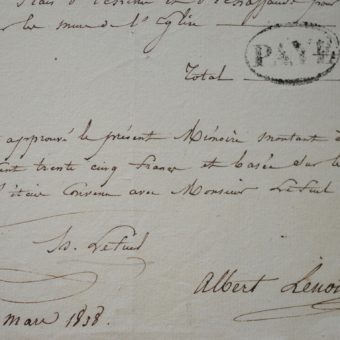 Frais d'
sur les murs de l'Eglise
PAYÉ
Total
approuvé le présent Mémoire montant à
cent trente cinq francs et basée sur le
était convenu avec Monsieur Lefuel
H. Lefuel
Albert Lenoir
mars 1838.